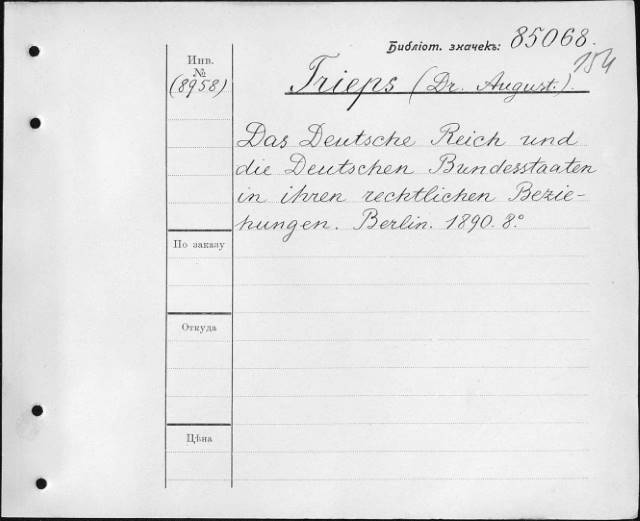 Библіот. значекъ: 85068.
154
Инв.
№
(8958)
Trieps (Dr. August.).
Das Deutsche Reich und
die Deutschen Bundesstaaten
in ihren rechtlichen Bezie-
hungen. Berlin. 1890. 8º
По заказу
Откуда
Цѣна